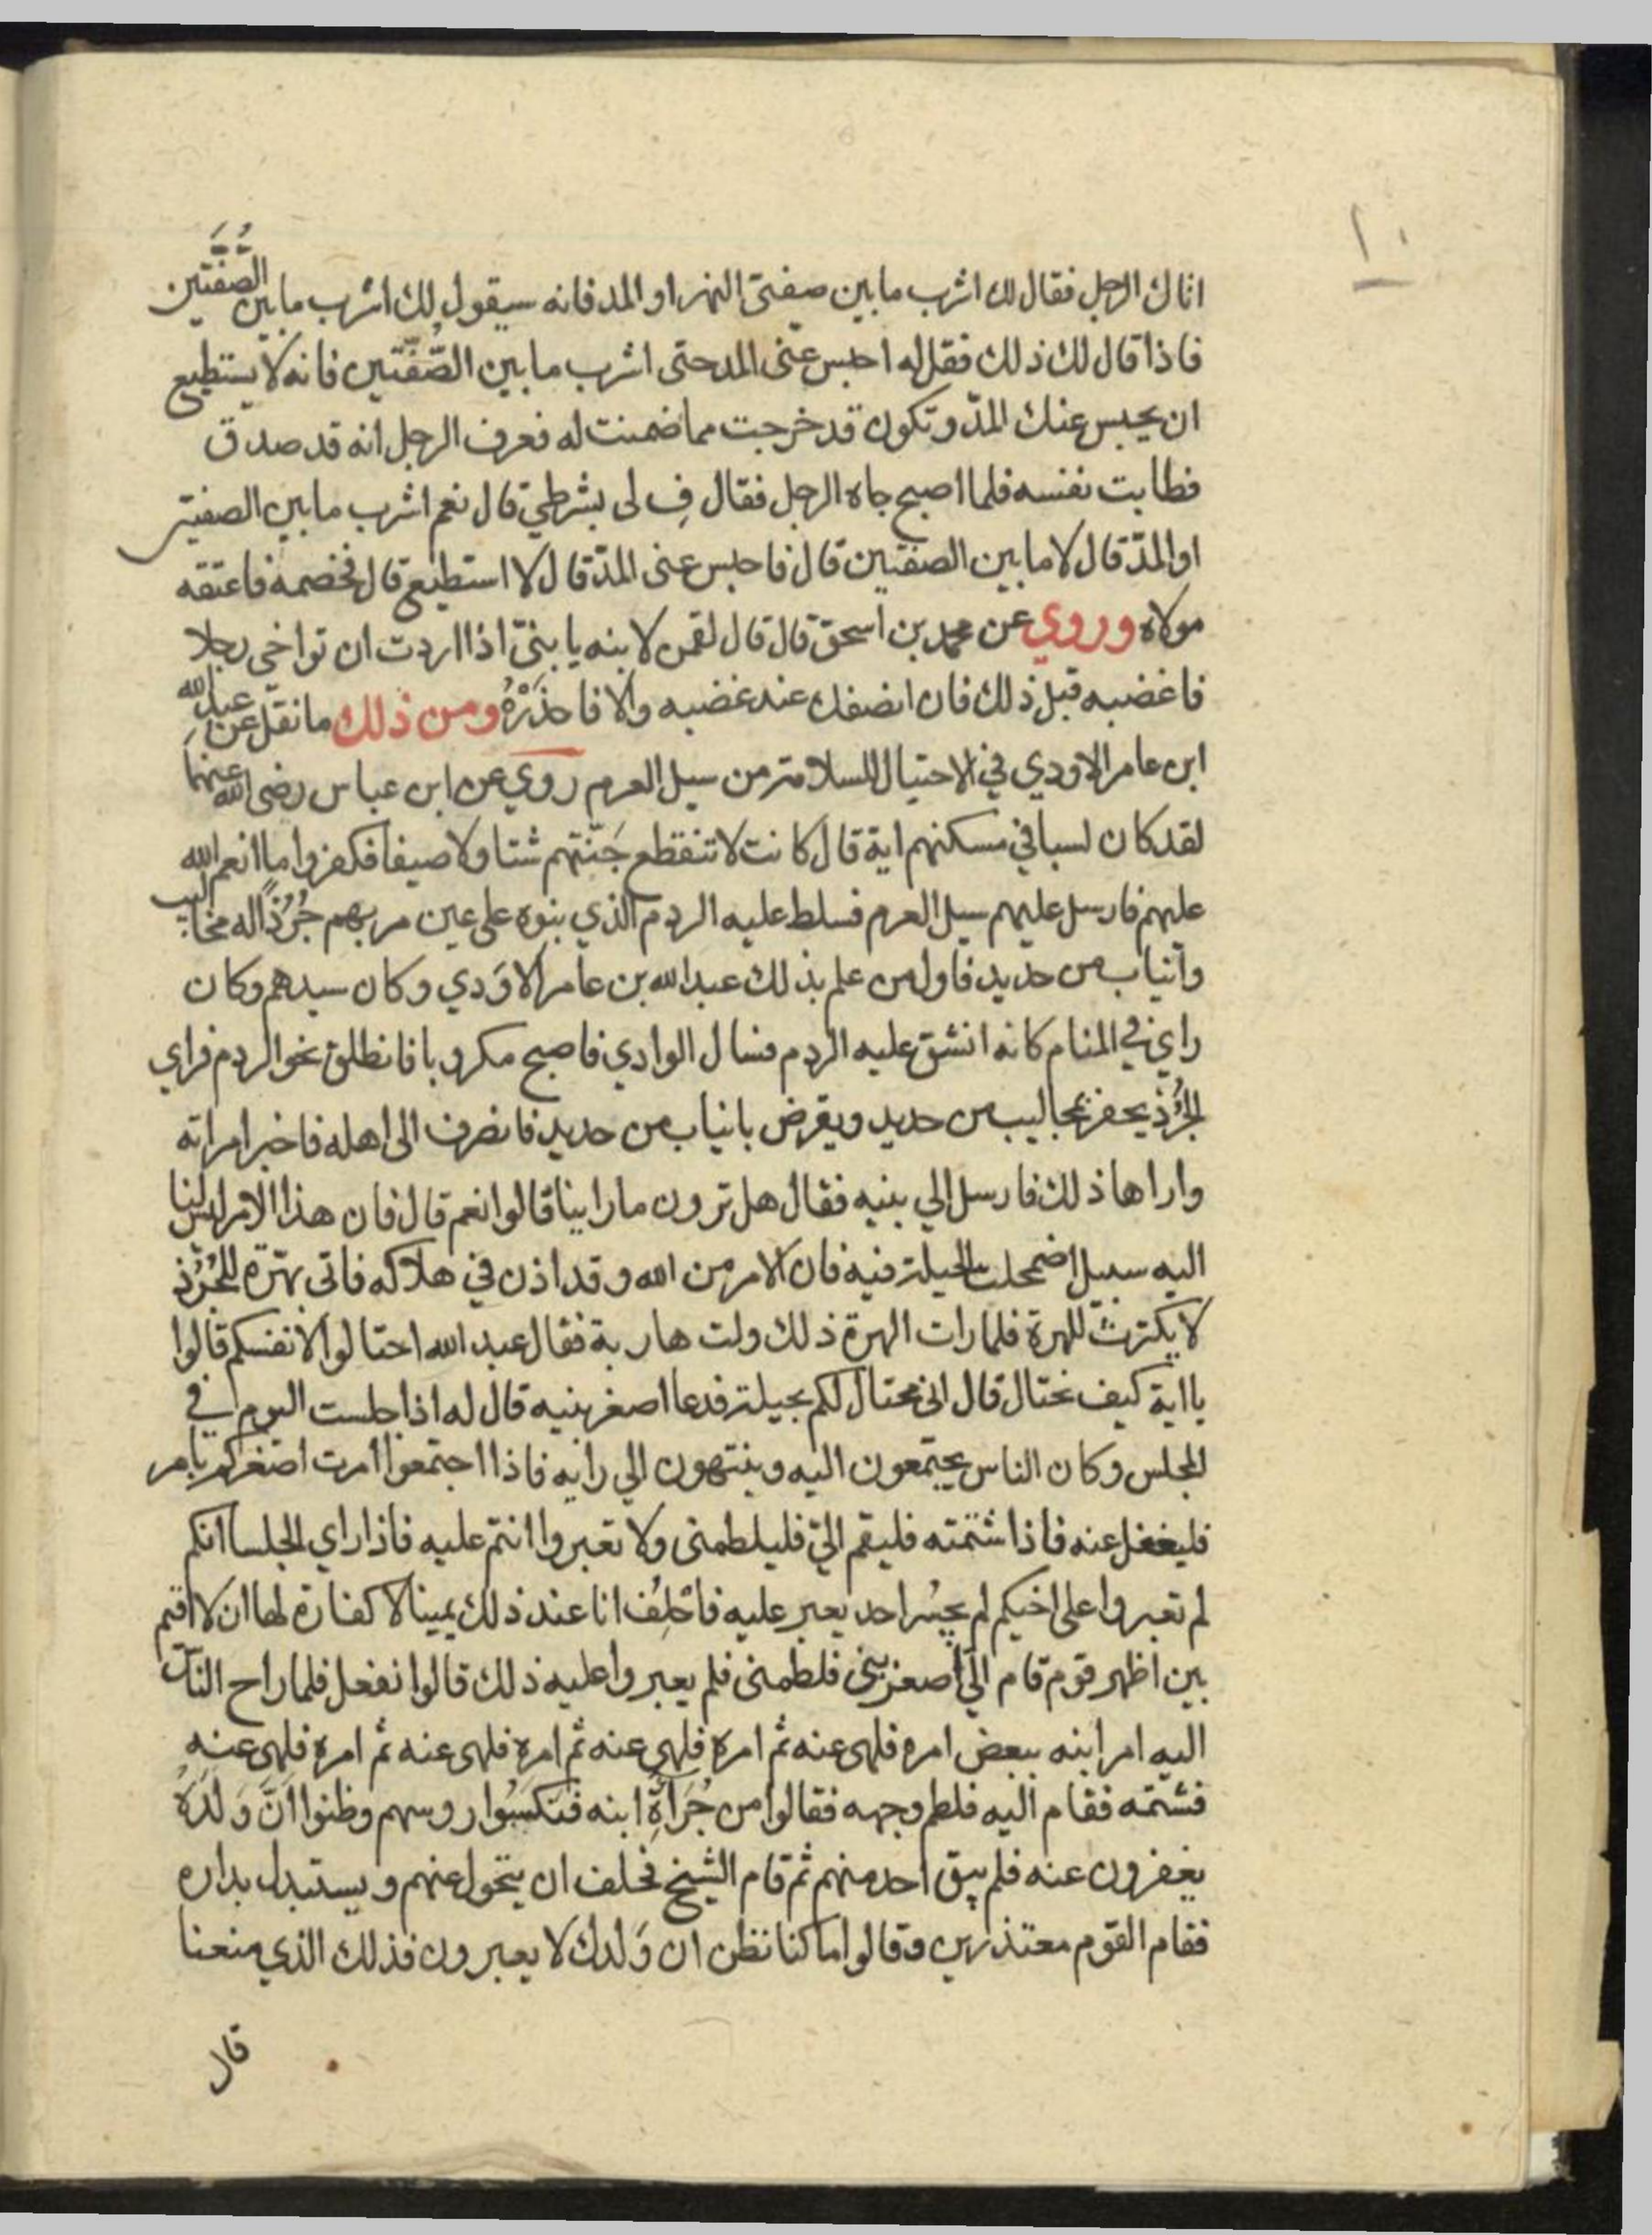 ١٠
اتاك الرجل فقال لك اشرب ما بين صفتي النهر او المد فانه سيقول لك اشرب ما بين الصُّفَّتَين
فاذا قال لك ذلك فقل له احبس عني المد حتى اشرب ما بين الصُّفَّتين فانه لا يستطيع
ان يحبس عنك المدّ وتكون قد خرجت مما ضمنت له فعرف الرجل انه قد صدق
فطابت نفسه فلما اصبح جاه الرجل فقال فِ لى بشرطي قال نعم اشرب ما بين الصفتين
او المدّ قال لا ما بين الصفتين قال فاحبس عنى المدّ قال لا استطيع قال فخصمه فاعتقه
مولاه وروي عن محمد بن اسحق قال قال لقمن لابنه يا بنيّ اذا اردت ان تواخى رجلا
فاغضبه قبل ذلك فان انصفك عند غضبه والا فاحذَرْهُ ومن ذلك ما نقل عن عبد الله
ابن عامر الاودي في الاحتيال للسلامة من سيل العرم روي عن ابن عباس رضى الله عنهما
لقد كان لسبا في مسكنهم اية قال كانت لا تنقطع جَنّتهم شتا ولا صيفا فكفروا ما انعم الله
عليهم فارسل عليهم سيل العرم فسلط عليه الردم الذي بنوه على عين مربهم جُرُذًا له مخاليب
وانياب من حديد فاول من علم بذلك عبد الله بن عامر الاوَدي وكان سيدهم وكان
راي في المنام كانه انشق عليه الردم فسال الوادي فاصبح مكروبا فانطلق نحو الردم فراي
الجُرُذ يحفر بمخاليب من حديد ويقرض بانياب من حديد فانصرف الى اهله فاخبر امراته
واراها ذلك فارسل الي بنيه فقال هل ترون ما راينا قالوا نعم قال فان هذا الامر ليس لنا
اليه سبيل اضمحلت الحيلة فيه فان الامر من الله وقد اذن في هلاكه فاتى بهّرة للجُرُذ
لا يكترث للهرة فلما رات الهرة ذلك ولت هاربة فقال عبد الله احتالوا لانفسكم قالوا
يا ابة كيف نحتال قال انى محتال لكم بحيلة فدعا اصغر بنيه قال له اذا جلست اليوم في
المجلس وكان الناس يجتمعون اليه وينتهون الي رايه فاذا اجتمعوا امرت اصغركم بامر
فليغفل عنه فاذا شتمته فليقم اليّ فليلطمنى ولا تعيروا انتم عليه فاذا راي الجلسا انكم
لم تعيروا على اخيكم لم يجسُر احد يعير عليه فاحْلِف انا عند ذلك يمينا لا كفارة لها ان لا اقيم
بين اظهر قوم قام اليّ اصغر بني فلطمنى فلم يعيروا عليه ذلك قالوا نفعل فلما راح الناس
اليه امر ابنه ببعض امره فلهى عنه ثم امره فلهى عنه ثم امره فلهى عنه ثم امره فلهى عنه
فشتمه فقام اليه فلطم وجهه فقالوا من جُرَاَةِ ابنه فنكسَوا روسهم وظنوا اَنَّ وَلَدَهُ
يغفرون عنه فلم يبق احد منهم ثم قام الشيخ فحلف ان يتحول عنهم ويستبدل بداره
فقام القوم معتذرين وقالوا ما كنا نظن ان وَلدك لا يعيرون فذلك الذي منعنا
قال